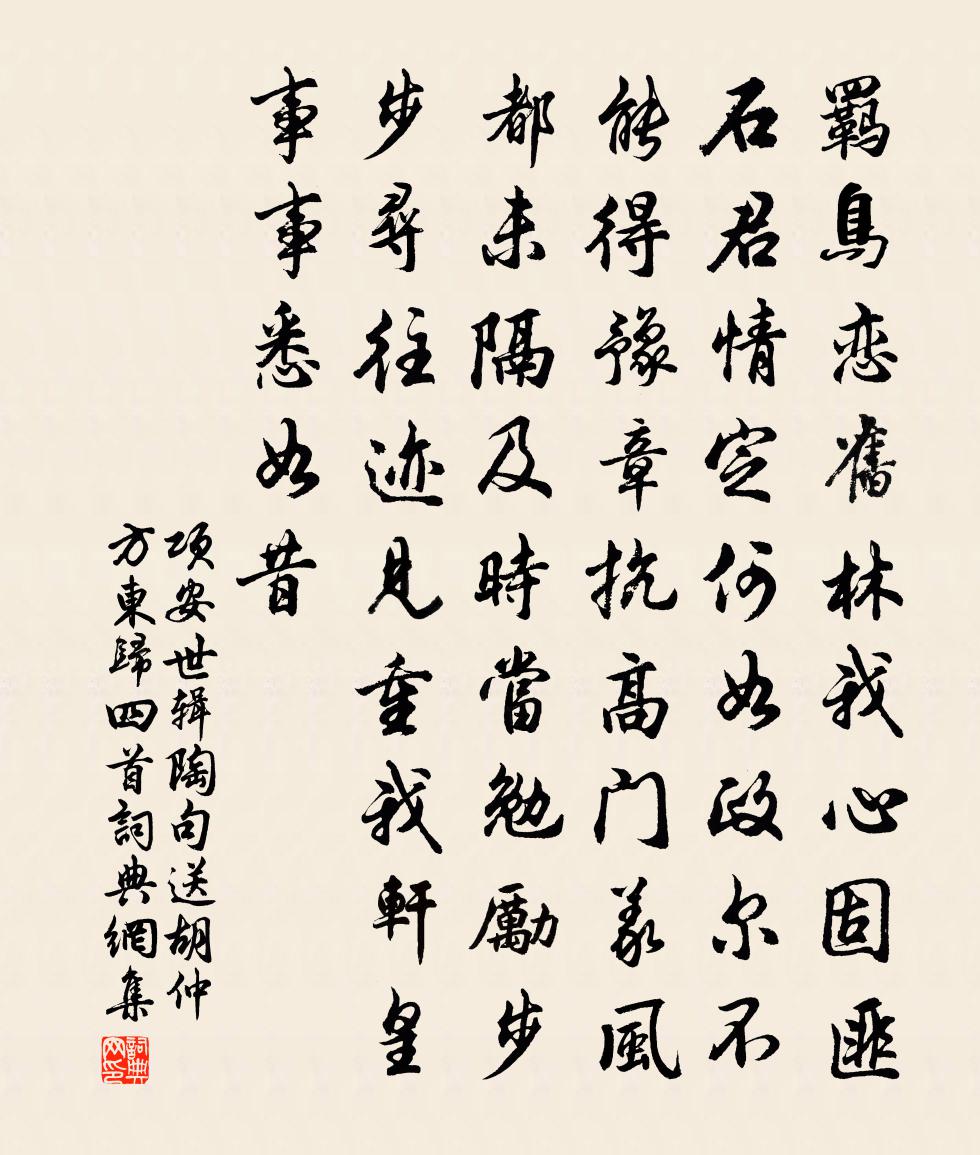 羈鳥恋舊林我心固匪
石君情定何如政尔不
能得豫章抗高门義風
都未隔及時當勉勵步
步尋往迹見重我軒皇
事事悉如昔
项安世辑陶句送胡仲
方東歸四首詞典網集
詞典网印